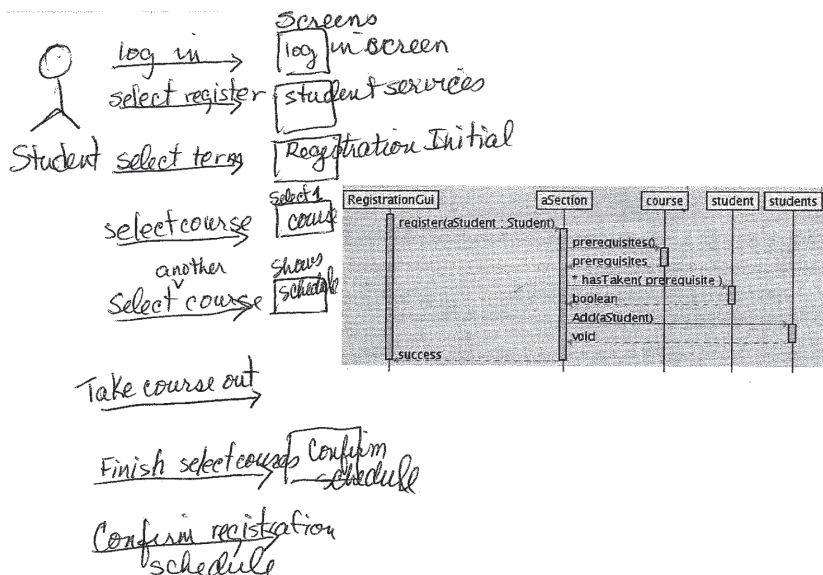 Screens
log in
log in screen
select register
student services
Student
select term
Registration Initial
select course
select 1
course
another
select course
shows
schedule
Take course out
Finish select courses
Confirm
schedule
Confirm registration
schedule
RegistrationGui
aSection
course
student
students
register(aStudent : Student)
prerequisites()
prerequisites
* hasTaken( prerequisite )
boolean
Add(aStudent)
void
success